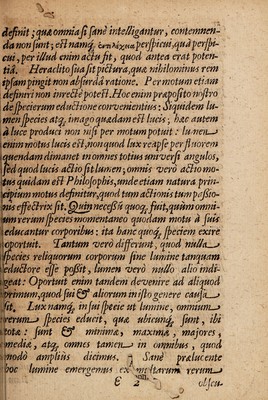 definit; quæ omnia si sanè intelligantur, contemnen-
da non sunt; est namq́; ἐντελέχεια perspicui, quà perspi-
cui, per illud enim actu fit, quod antea erat poten-
tiâ. Heraclito sua sit pictura, quæ nihilominus rem
ipsam pingit non absurdâ ratione. Per motum etiam
definiri non inrectè potest. Hoc enim præposito nostro
de specierum eductione convenientius; Siquidem lu-
men species atq́; imago quædam est lucis; hæc autem
à luce produci non nisi per motum potuit: lumen
enim motus lucis est, non quod lux reapse per fluorem
quendam dimanet in omnes totius universi angulos,
sed quod lucis actio sit lumen; omnis verò actio mo-
tus quidam est Philosophis, unde etiam natura prin-
cipium motus definitur, quod tum actionis tum passio-
nis effectrix sit. Quin necessũ quoq́; fuit, quùm omni-
um rerum species momentaneo quodam motu à suis
educantur corporibus: ita hanc quoq́; speciem exire
oportuit. Tantum verò differunt, quod nulla
species reliquorum corporum sine lumine tanquam
eductore esse possit, lumen verò nullo alio indi-
geat: Oportuit enim tandem devenire ad aliquod
primum, quod sui & aliorum in isto genere causa
sit. Lux namq́; in sui specie ut lumine, omnium
rerum species educit, quæ ubicunq́; sunt, ibi
totæ: sunt & minimæ, maximæ, majores,
mediæ, atq́; omnes tamen in omnibus, quod
modò amplius dicimus. Sanè prælucente
hoc lumine emergemus ex multarum rerum
E 2 obscu-